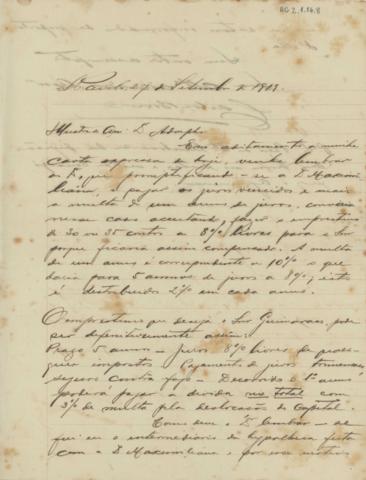 AG 2.1.16.8
S. Paulo, 27 de Setembro de 1903.
Illustre Am.º D. Adolpho
Como additamento a minha
carta expressa de hoje, venho lembrar
a V., que promptificando-se a D. Maximiliana, a pagar os juros vencidos e mais
a multa de um anno de juros, convem
nesse caso acceitando, fazer o emprestimo
de 30 ou 35 contos a 8% livres para o Snr
porque ficaria assim compensado. A multa
de um anno é correspondente a 10% o que
daria para 5 annos de juros a 8%; isto
é distribuidos 2% em cada anno.
O emprestimo que deseja o Snr Guimarães, pode
ser definitivamente assim:
Prazo 5 annos — Juros 8% livres de quaesquer impostos. Pagamento de juros trimensaes,
seguro contra fogo — Decorrido o 1º anno
poderá pagar a divida no total com
3% de multa pela deslocação do Capital.
Como sabe o D. lembrar-se
fui eu o intermediario da hypotheca feita
com a D. Maximiliana e por esse motivo